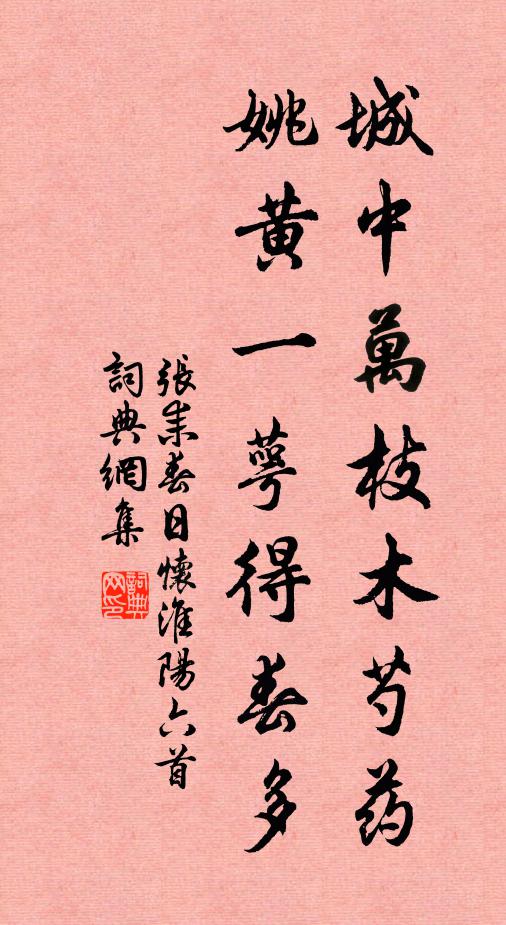 城中萬枝木芍药
姚黄一萼得春多
張耒春日懷淮陽六首
詞典網集
詞典网印